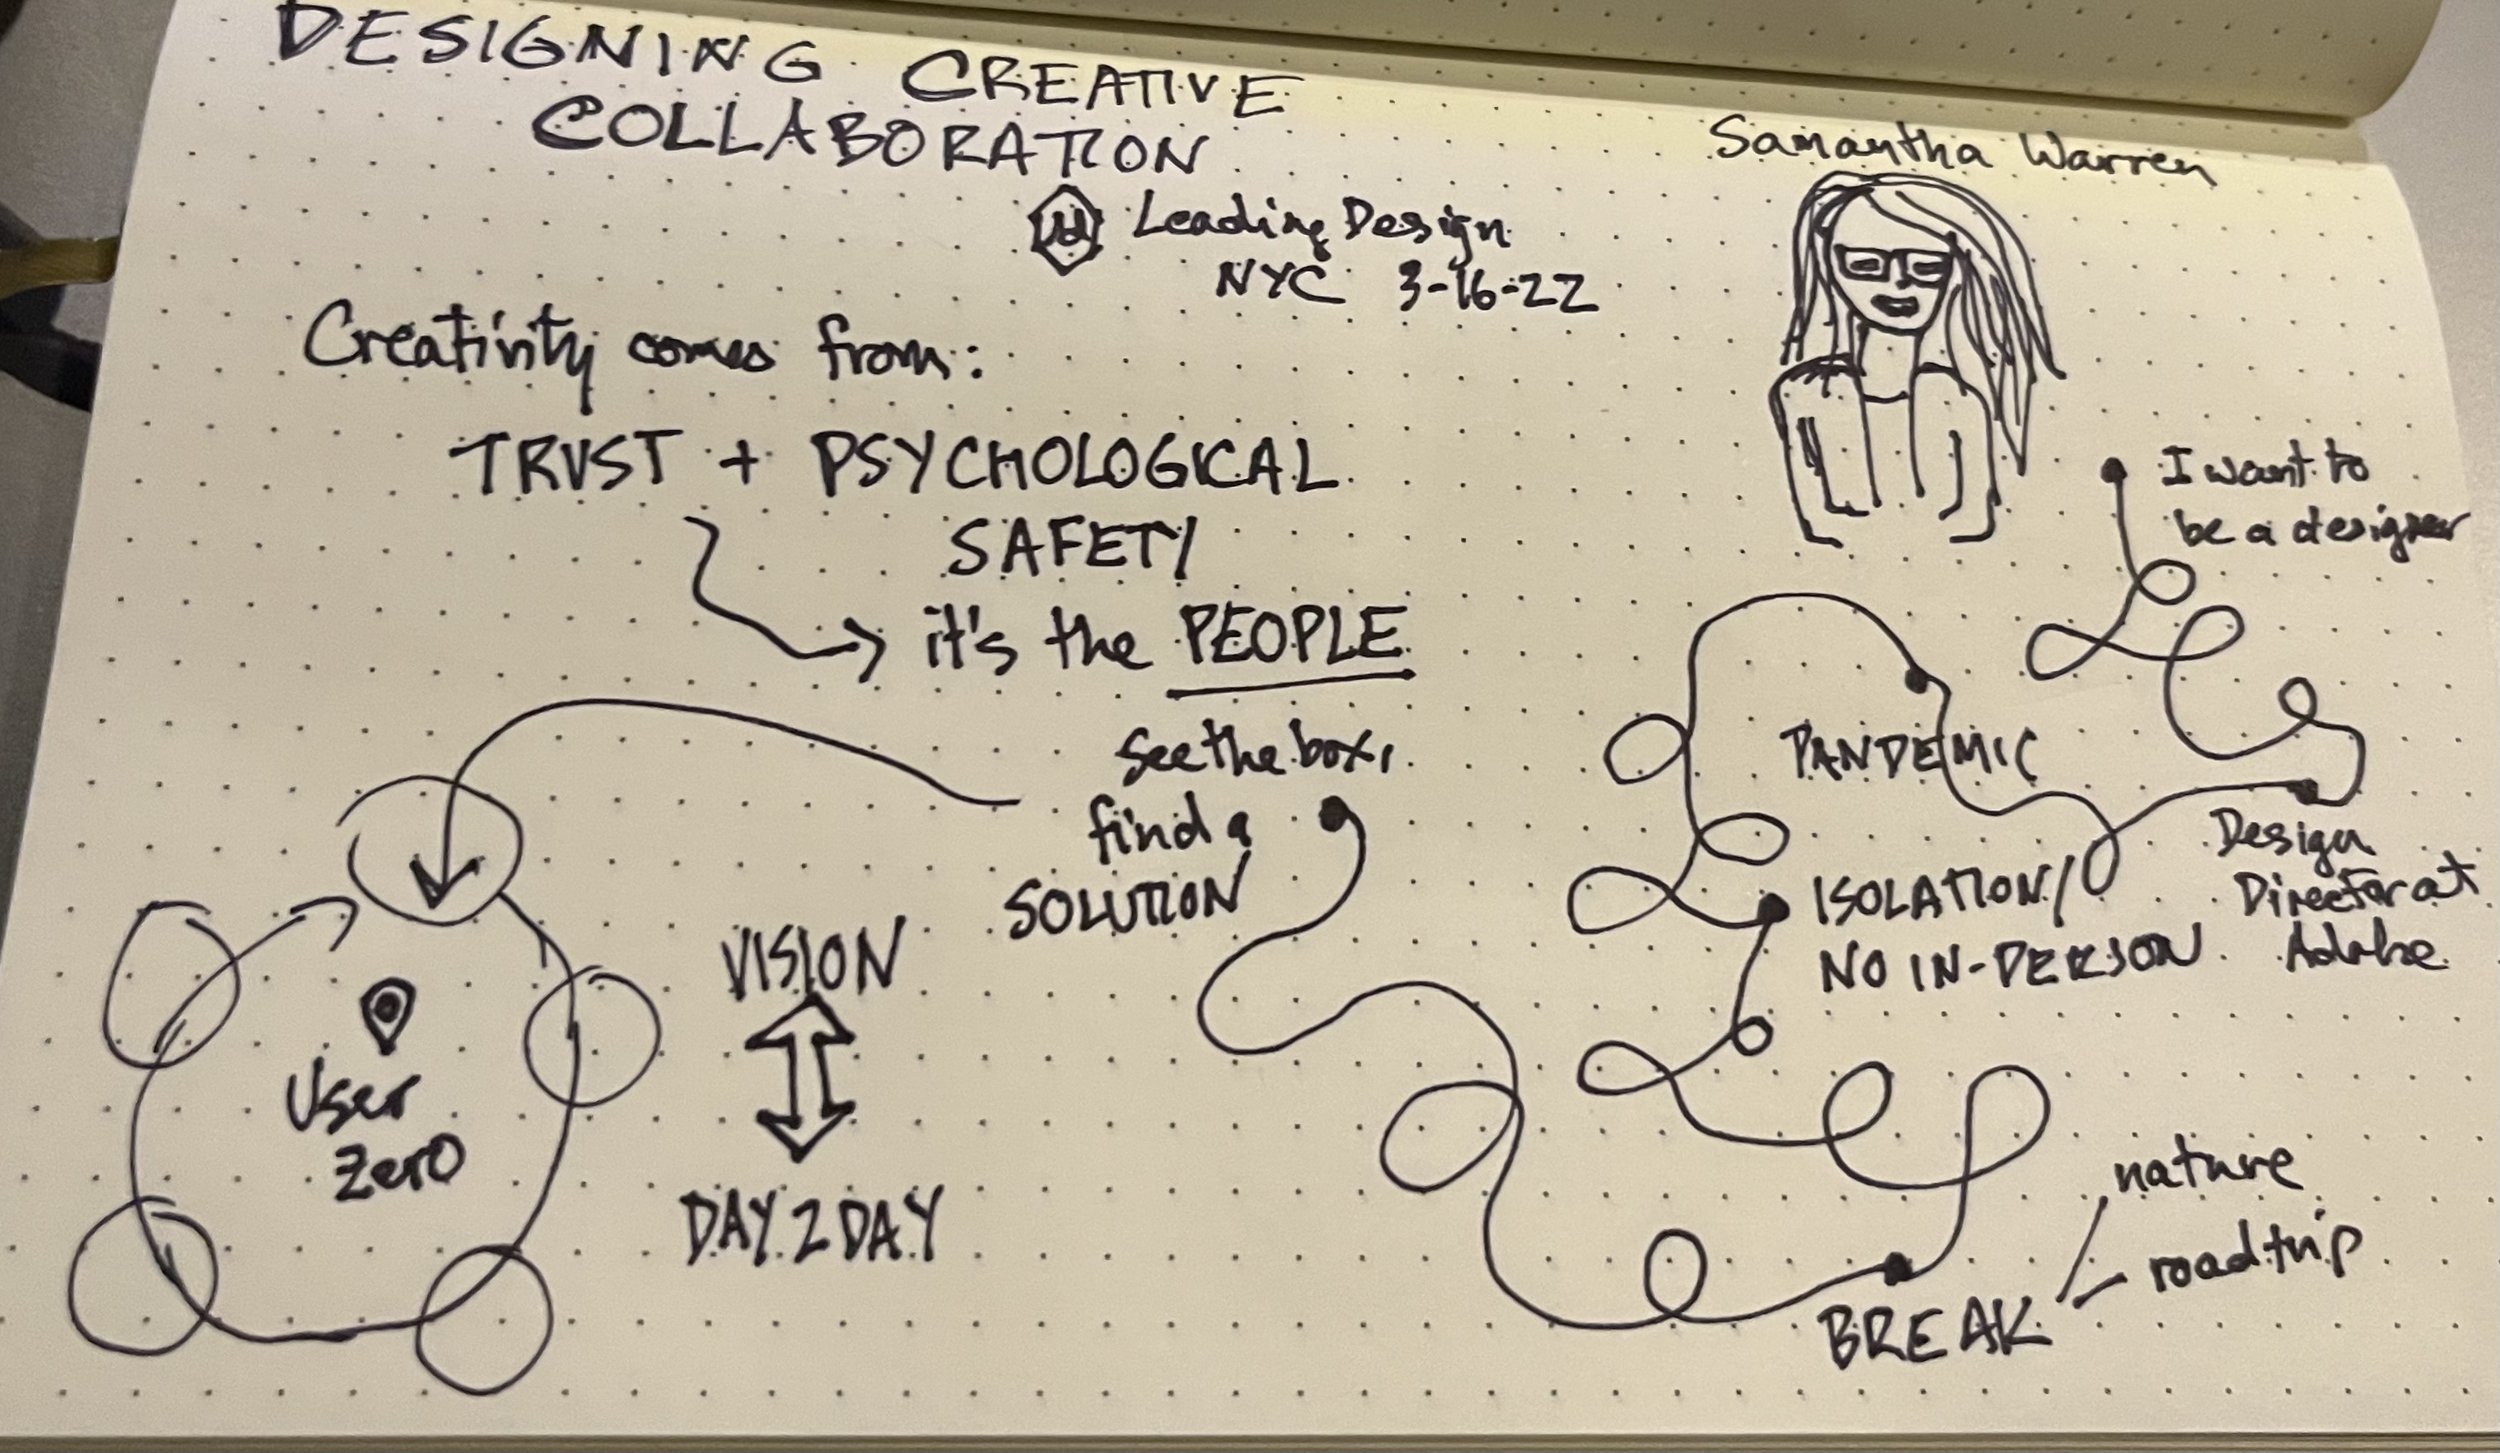 DESIGNING CREATIVE
COLLABORATION
Samantha Warren
Ld Leading Design
NYC 3-16-22
Creativity comes from:
TRUST + PSYCHOLOGICAL
SAFETY
it's the PEOPLE
I want to
be a designer
Design
Director at
Adobe
PANDEMIC
ISOLATION/
NO IN-PERSON
nature
roadtrip
BREAK
See the box,
find a
SOLUTION
VISION
DAY 2 DAY
User
Zero